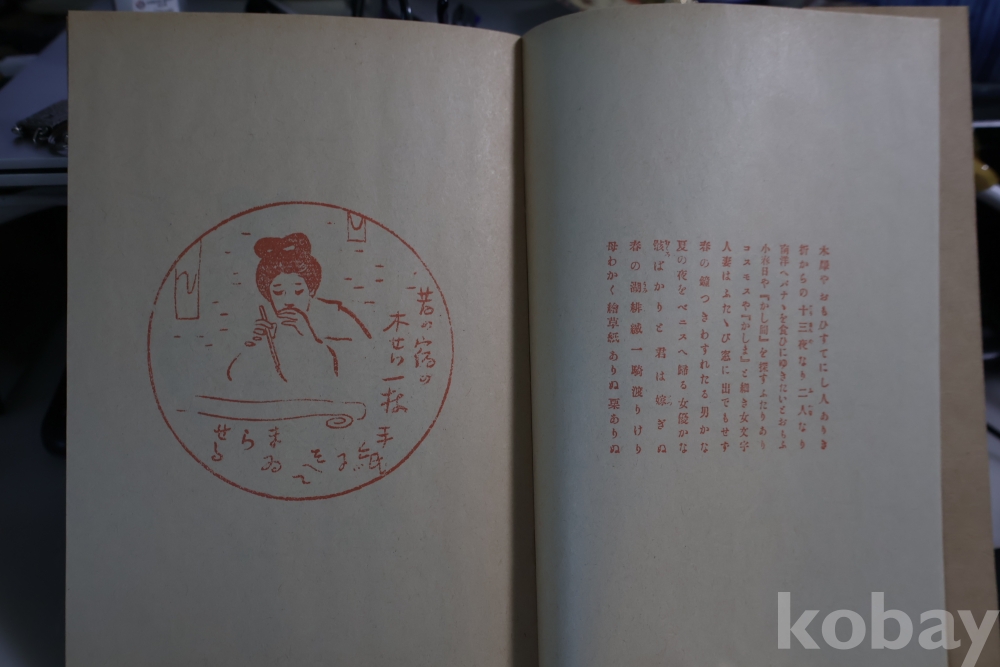 木犀やおもひすてにし人ありき
折からの十三夜なり二人なり
南洋へバナヽを食ひにゆきたいとおもふ
小春日や『かし間』を探すふたりあり
コスモスや『かしま』と細き女文字
人妻はふたゝび窓に出でもせず
春の鐘つきわすれたる男かな
夏の夜をベニスへ歸る女優かな
ばかりと君は嫁ぎぬ
春の湖緋縅一騎渡りけり
母わかく繪草紙ありぬ ありぬ
君の宿の
木せい一枝
手紙に
そへて
まゐ
ら
せる
kobay